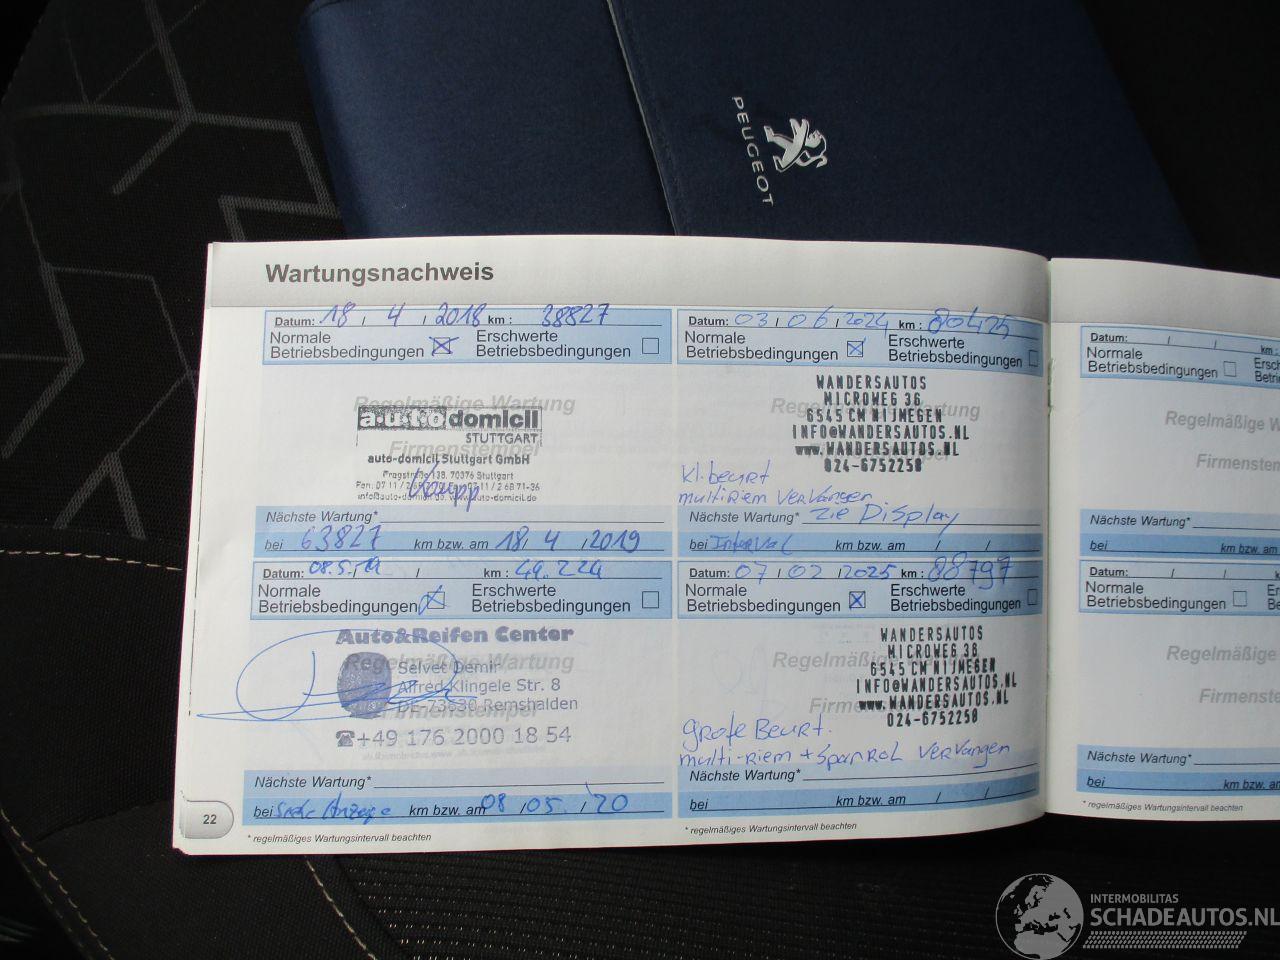 PEUGEOT
Wartungsnachweis
Datum: 18 / 4 / 2018 km : 38827
Normale Betriebsbedingungen
Erschwerte Betriebsbedingungen
Regelmäßige Wartung
auto domicil
STUTTGART
Firmenstempel
auto-domicil Stuttgart GmbH
70376 Stuttgart
Nächste Wartung*
bei 63827 km bzw. am 18. 4 / 2019
Datum: 08.5.19 / km : 49.224
Normale Betriebsbedingungen
Erschwerte Betriebsbedingungen
Auto&Reifen Center
Regelmäßige Wartung
Selvet Demir
Alfred Klingele Str. 8
DE-73630 Remshalden
Firmenstempel
☎+49 176 2000 18 54
Nächste Wartung*
bei Siehe Anzeige km bzw. am 08 / 05 / 20
* regelmäßiges Wartungsintervall beachten
22
Datum: 03 / 06 / 2024 km : 80425
Normale Betriebsbedingungen
Erschwerte Betriebsbedingungen
Regelmäßige Wartung
WANDERSAUTOS
MICROWEG 36
6545 CM NIJMEGEN
INFO@WANDERSAUTOS.NL
www.WANDERSAUTOS.NL
024-6752258
kl. beurt
multiriem vervangen
Nächste Wartung* zie Display
bei Interval km bzw. am / /
Datum: 07 / 02 / 2025 km : 88797
Normale Betriebsbedingungen
Erschwerte Betriebsbedingungen
WANDERSAUTOS
MICROWEG 36
6545 CM NIJMEGEN
INFO@WANDERSAUTOS.NL
www.WANDERSAUTOS.NL
024-6752258
grote Beurt.
multi-riem + spanrol vervangen
Nächste Wartung*
bei km bzw. am / /
* regelmäßiges Wartungsintervall beachten
Datum: / / km :
Normale
Betriebsbedingungen
Regelmäßige
Firmenstem
Nächste Wartung*
bei km bzw. am
Datum: / / km :
Normale
Betriebsbedingungen
Regelmäßige
Firmenste
Nächste Wartung*
bei km bzw. am
* regelmäßiges Wartungsintervall beachten
INTERMOBILITAS
SCHADEAUTOS.NL